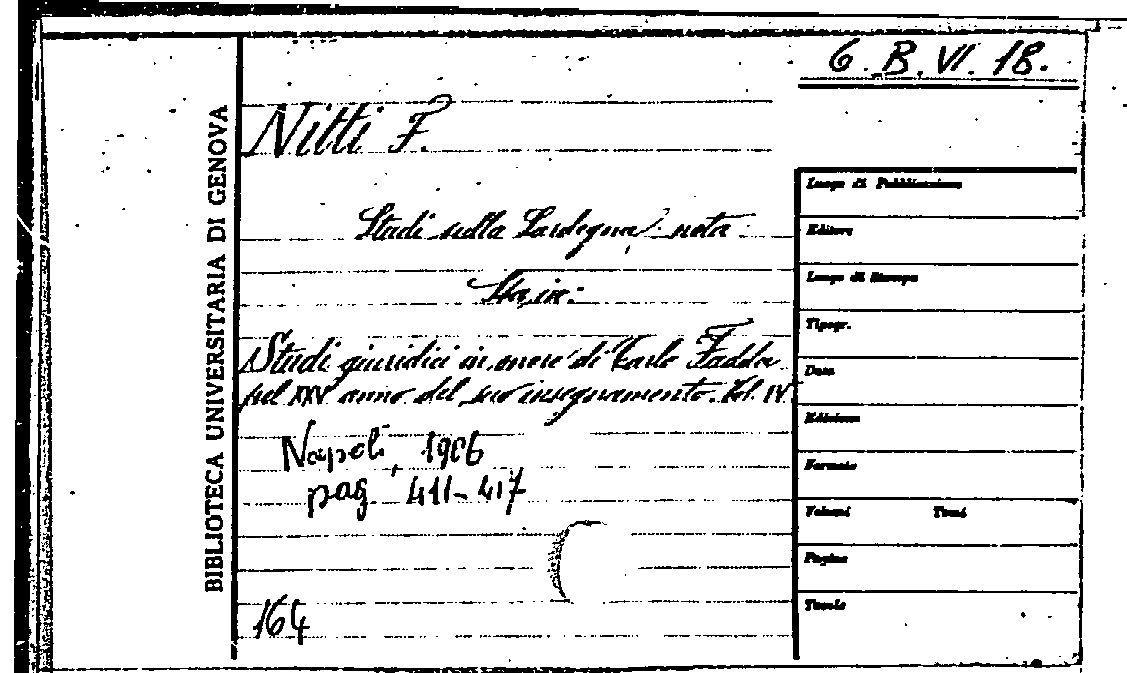 6. B. VI. 18.
BIBLIOTECA UNIVERSITARIA DI GENOVA
Nitti F.
Studi sulla Sardegna: nota
Sta in:
Studi giuridici in onore di Carlo Fadda
pel XXV anno del suo insegnamento. Vol. IV.
Napoli, 1906
pag. 411-417
164
Luogo di Pubblicazione
Editore
Luogo di Stampa
Tipogr.
Data
Edizione
Formato
Volumi Tomi
Pagine
Tavole